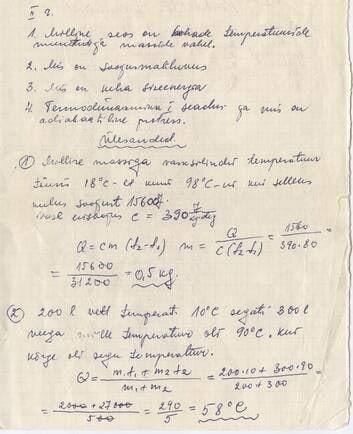 II r.
1. Milline seos on kehade temperatuuride
muutustega masside vahel.
2. Mis on soojusmahtuvus
3. Mis on keha siseenergia
4. Termodünaamika I seadus ja mis on
adiabaatiline protsess.
Ülesanded
① Millise massiga vasksilindri temperatuur
tõusis 18°C-lt kuni 98°C-ni kui selleks
kulus soojust 15600 J.
vase erisoojus c = 390 J/kg·deg
Q = cm (t₂-t₁) m = Q / c(t₂-t₁) = 1560 / 390·80 =
= 15600 / 31200 = 0,5 kg.
② 200 l vett temperat. 10°C segati 300 l
veega mille temperatuur oli 90°C. kui
kõrge oli segu temperatuur.
Q = m₁t₁ + m₂t₂ / m₁+m₂ = 200·10 + 300·90 / 200 + 300 =
= 2000 + 27000 / 500 = 290 / 5 = 58°C